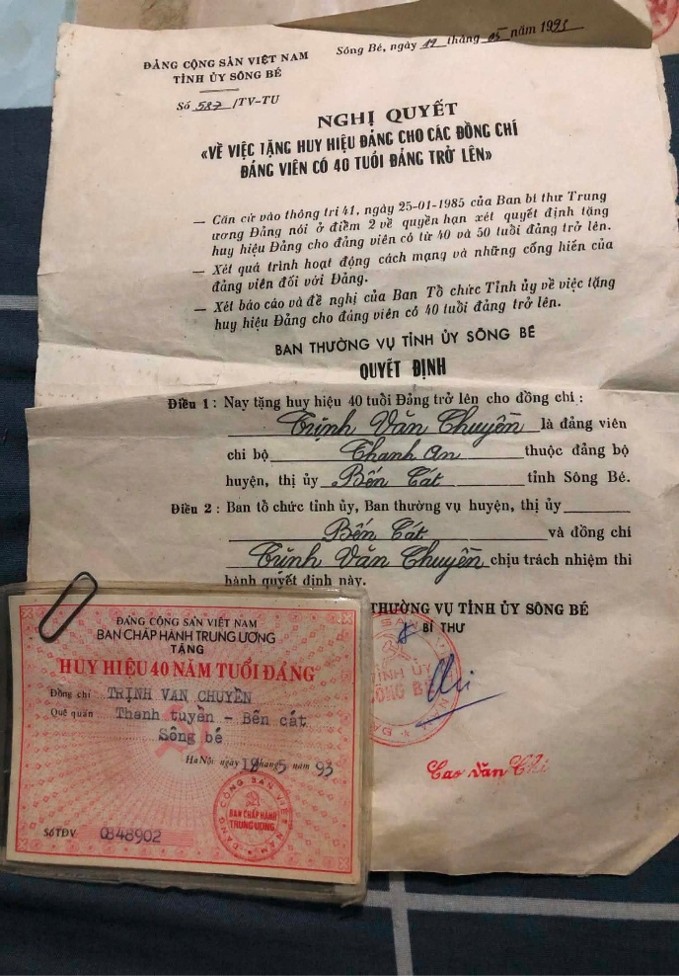 ĐẢNG CỘNG SẢN VIỆT NAM
TỈNH ỦY SÔNG BÉ
Số 587/TV-TU
Sông Bé, ngày 19 tháng 05 năm 1993
NGHỊ QUYẾT
«VỀ VIỆC TẶNG HUY HIỆU ĐẢNG CHO CÁC ĐỒNG CHÍ
ĐẢNG VIÊN CÓ 40 TUỔI ĐẢNG TRỞ LÊN»
— Căn cứ vào thông tri 41, ngày 25-01-1985 của Ban bí thư Trung
ương Đảng nói ở điểm 2 về quyền hạn xét quyết định tặng
huy hiệu Đảng cho đảng viên có từ 40 và 50 tuổi đảng trở lên.
— Xét quá trình hoạt động cách mạng và những cống hiến của
đảng viên đối với Đảng.
— Xét báo cáo và đề nghị của Ban Tổ chức Tỉnh ủy về việc tặng
huy hiệu Đảng cho đảng viên có 40 tuổi đảng trở lên.
BAN THƯỜNG VỤ TỈNH ỦY SÔNG BÉ
QUYẾT ĐỊNH
Điều 1 : Nay tặng huy hiệu 40 tuổi Đảng trở lên cho đồng chí :
Trịnh Văn Chuyền là đảng viên
chi bộ Thanh An thuộc đảng bộ
huyện, thị ủy Bến Cát tỉnh Sông Bé.
Điều 2 : Ban tổ chức tỉnh ủy, Ban thường vụ huyện, thị ủy
Bến Cát và đồng chí
Trịnh Văn Chuyền chịu trách nhiệm thi
hành quyết định này.
THƯỜNG VỤ TỈNH ỦY SÔNG BÉ
BÍ THƯ
TỈNH ỦY
SÔNG BÉ
Cao Văn Chi
ĐẢNG CỘNG SẢN VIỆT NAM
BAN CHẤP HÀNH TRUNG ƯƠNG
TẶNG
HUY HIỆU 40 NĂM TUỔI ĐẢNG
Đồng chí TRỊNH VAN CHUYỀN
Quê quán Thanh tuyền - Bến cát
Sông bé
Hà Nội ngày 19 tháng 5 năm 93
ĐẢNG CỘNG SẢN VIỆT NAM
BAN CHẤP HÀNH
TRUNG ƯƠNG
Số TĐV 0848902